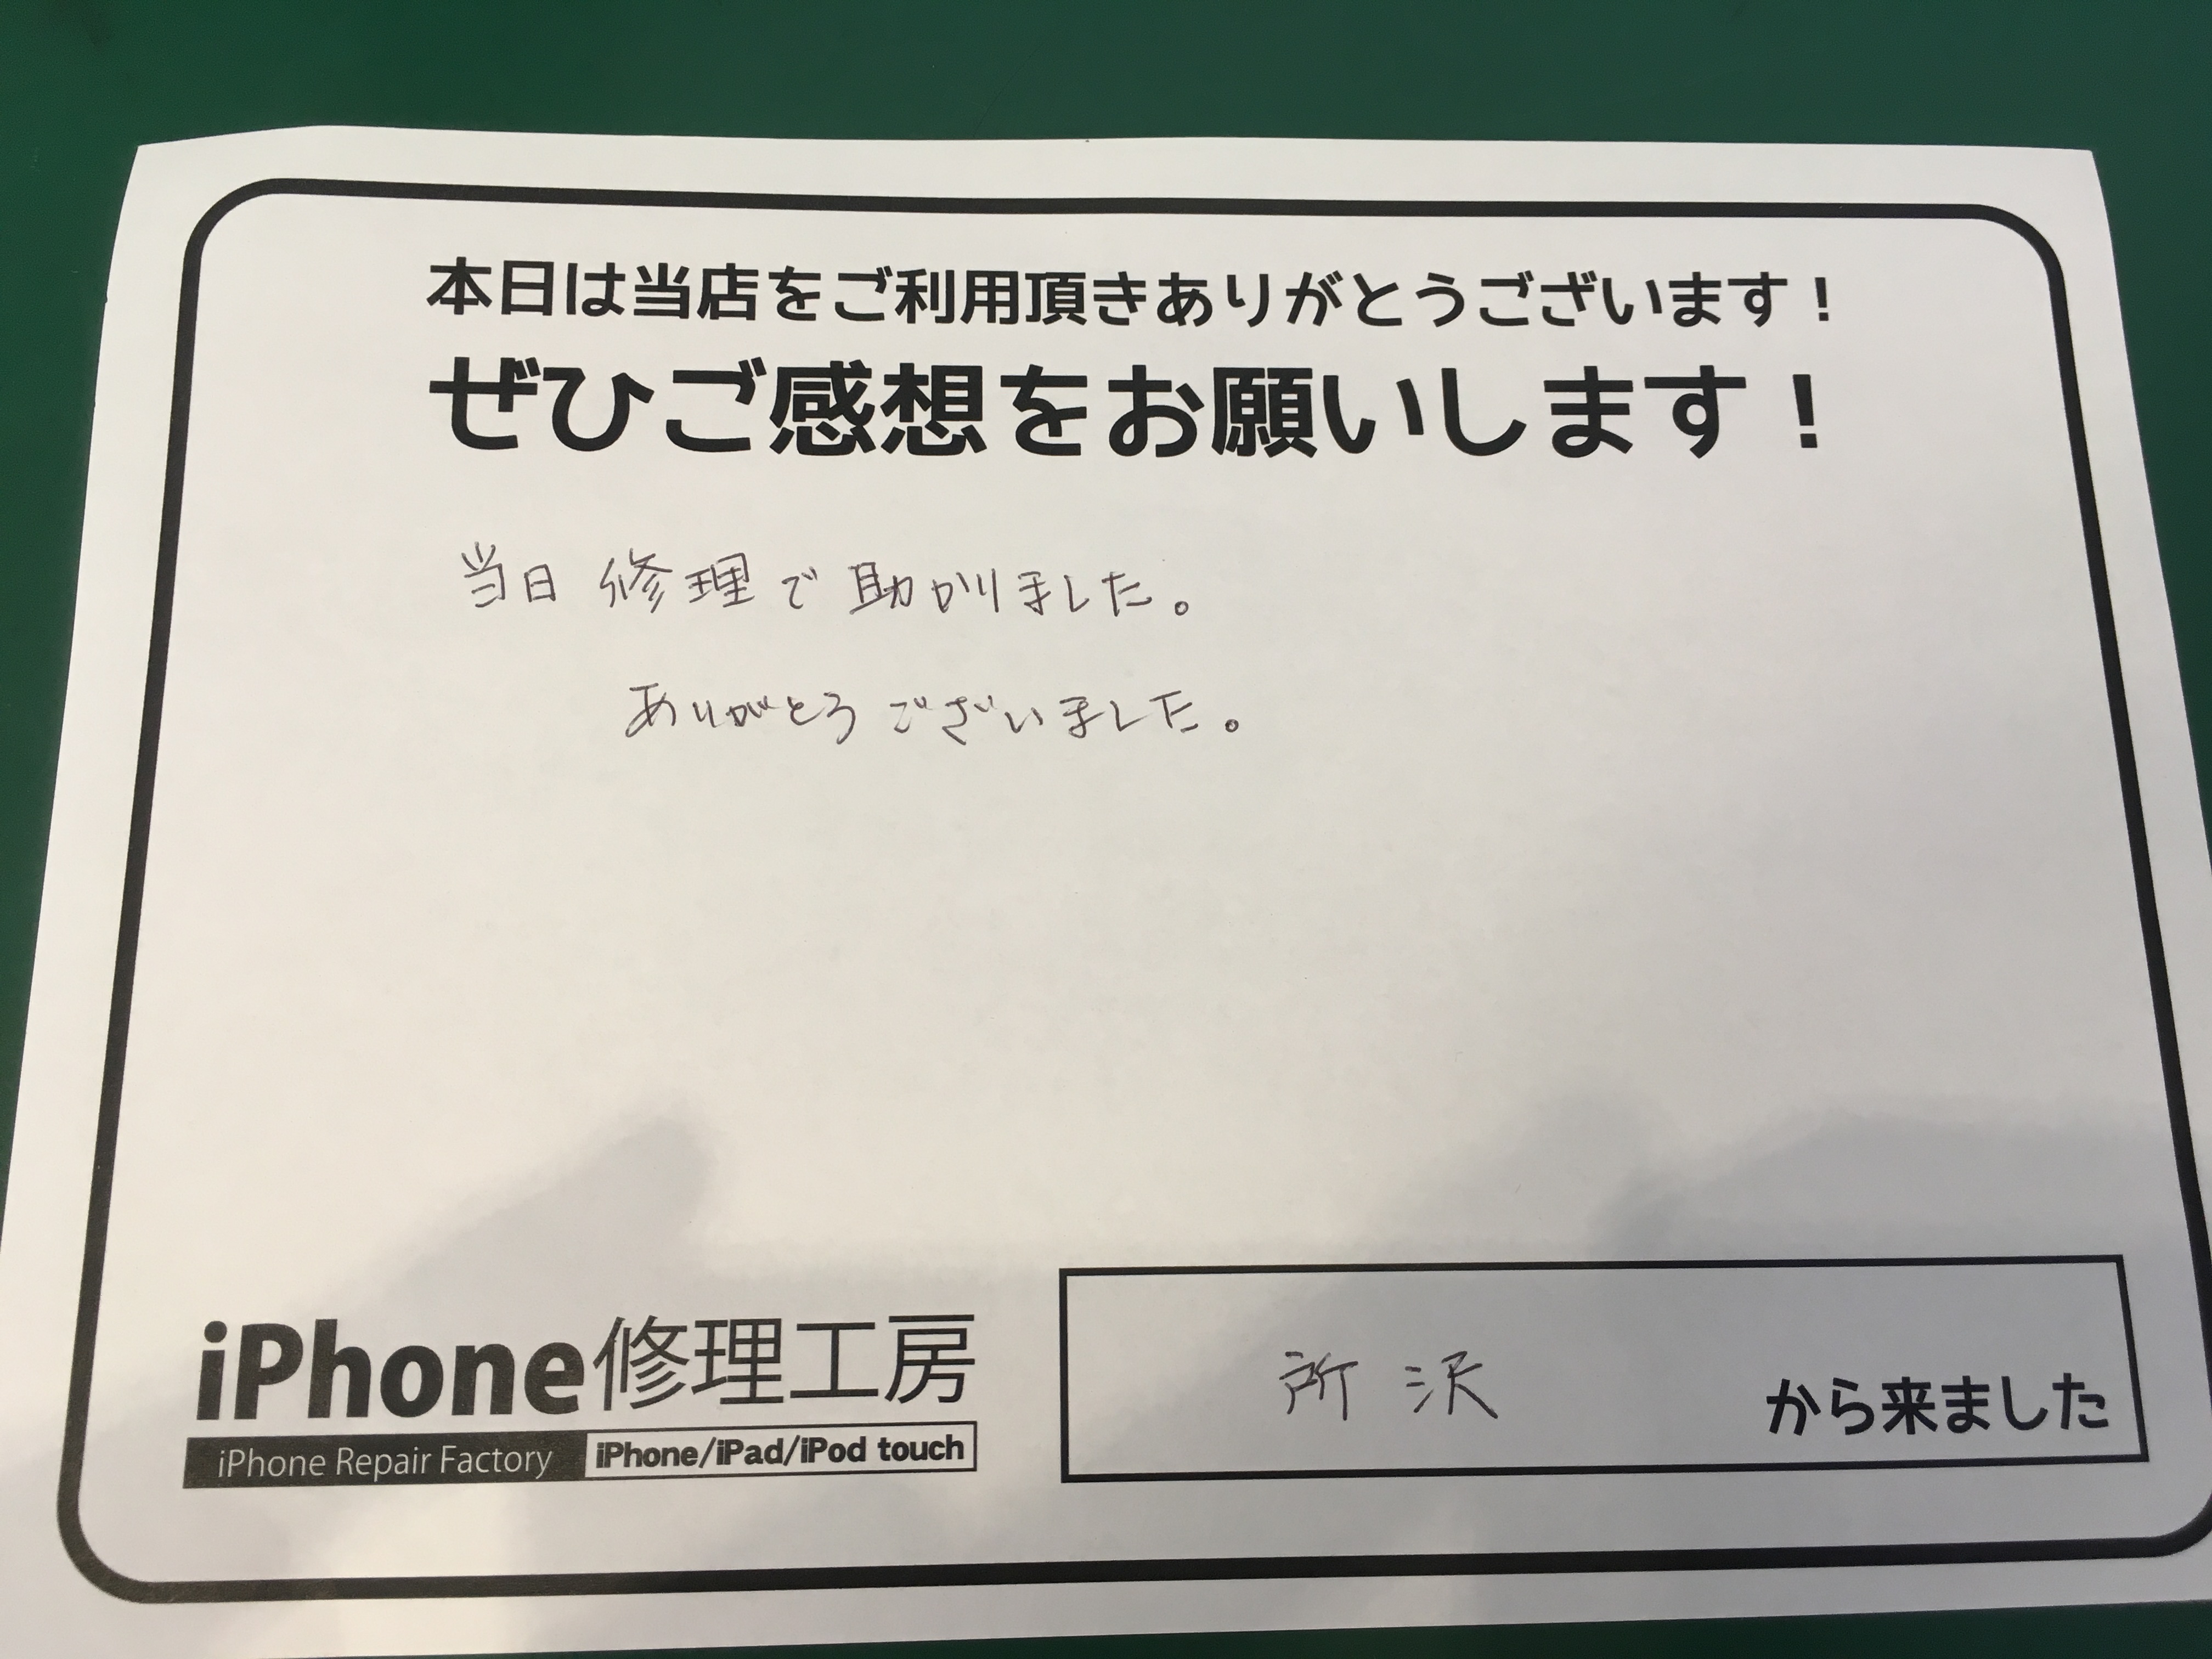 本日は当店をご利用頂きありがとうございます！
ぜひご感想をお願いします！
当日修理で助かりました。
ありがとうございました。
iPhone修理工房
iPhone Repair Factory iPhone/iPad/iPod touch
所沢 から来ました